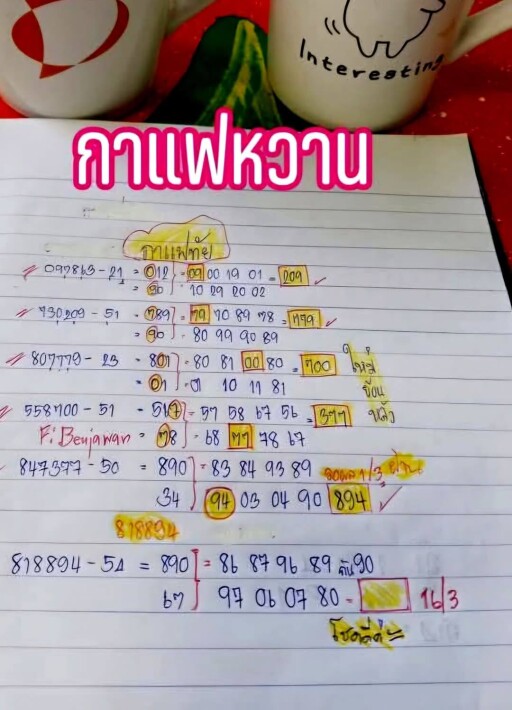 Interesting
กาแฟหวาน
097863 - 21 = 012 = 09 00 19 01 = 209
= 90 10 29 20 02
730209 - 51 = 789 = 79 70 89 78 = 779
= 90 80 99 90 89
807779 - 23 = 801 = 80 81 00 80 = 700
= 01 01 10 11 81
558700 - 51 - 517 = 57 58 67 56 = 377
F: Benjawan = 78 68 77 78 67
847377 - 50 = 890 = 83 84 93 89 1/3
34 94 03 04 90 894
818894
818894 - 51 = 890 = 86 87 96 89 90
67 97 06 07 80 - 16/3